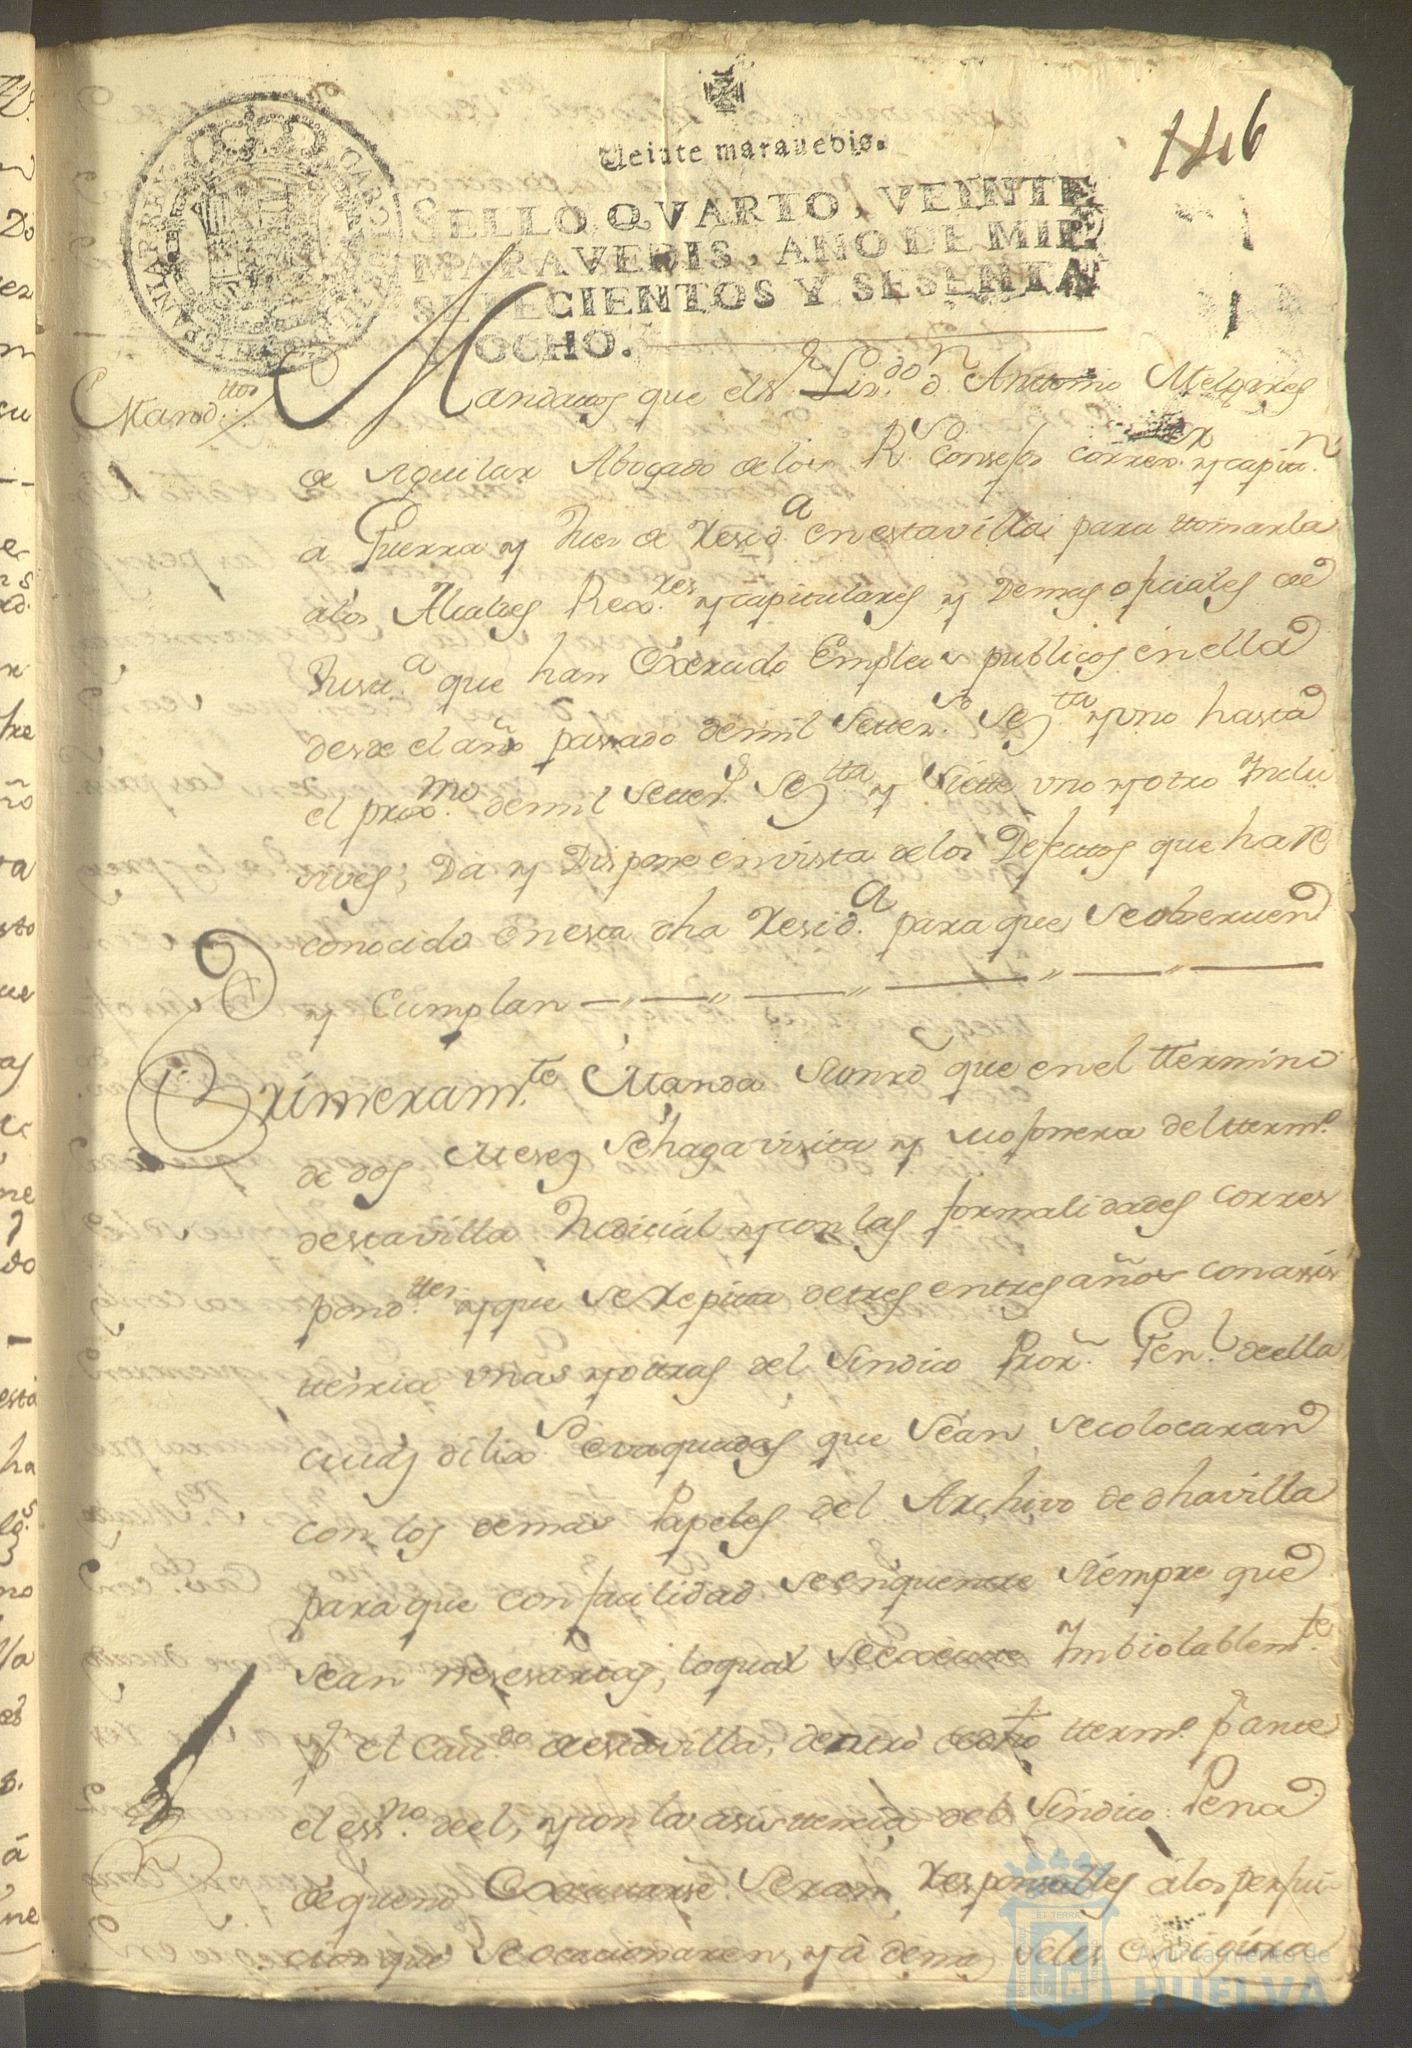 Veinte marauedis.
146
SELLO QVARTO, VEINTE
MARAVEDIS, AÑO DE MIL
SETECIENTOS Y SESENTA
OCHO.
Mand.ttos
Mandattos que el s.r Liz.do d.n Anttonio Melgares
de Aguilar Abogado de los R.s Consejos correx.r y capitt.n
a Guerra y Juez de Resid.a en esta villa para ttomarla
a los Alcaldes Rex.res y capitulares y Demas oficiales de
Justt.a que han Exercido Empleos publicos en ella
desde el año pasado de mil Setter.s Ses.ta y uno hasta
el prox.mo de mil Setter.s Ses.tta y Siette uno y otro Inclu
sives, Da y Dispone en vista de los Defectos que ha re
conocido En esta dha Resid.a para que Se obseruen
y Cumplan
Primeram.te Manda Su mrd que en el ttermino
de dos Meses Se haga visita y mojonera del tterm.o
de esta villa Judicial y con las formalidades corres
pond.ttes y que Se Repitta de tres en tres años con asis
ttencia unas y ottras del Sindico Pror. Gen.l de ella
cuias dilix.s evaquadas que Sean Se colocaran
con los demas Papeles del Archivo de dha villa
para que con facilidad Se enquentre Siempre que
Sean nesesarias, lo qual Se execute Imbiolablem.te
p.r el Cau.do de esta villa, dentro de dho tterm.o p.r ante
el ess.no de el, y con la asisttencia del Sindico Pena
de que no Executarse Seran Responsables a los perjui-
cios que Se ocacionaren, y a demas Seles Exigira
Ayuntamiento de
HUELVA